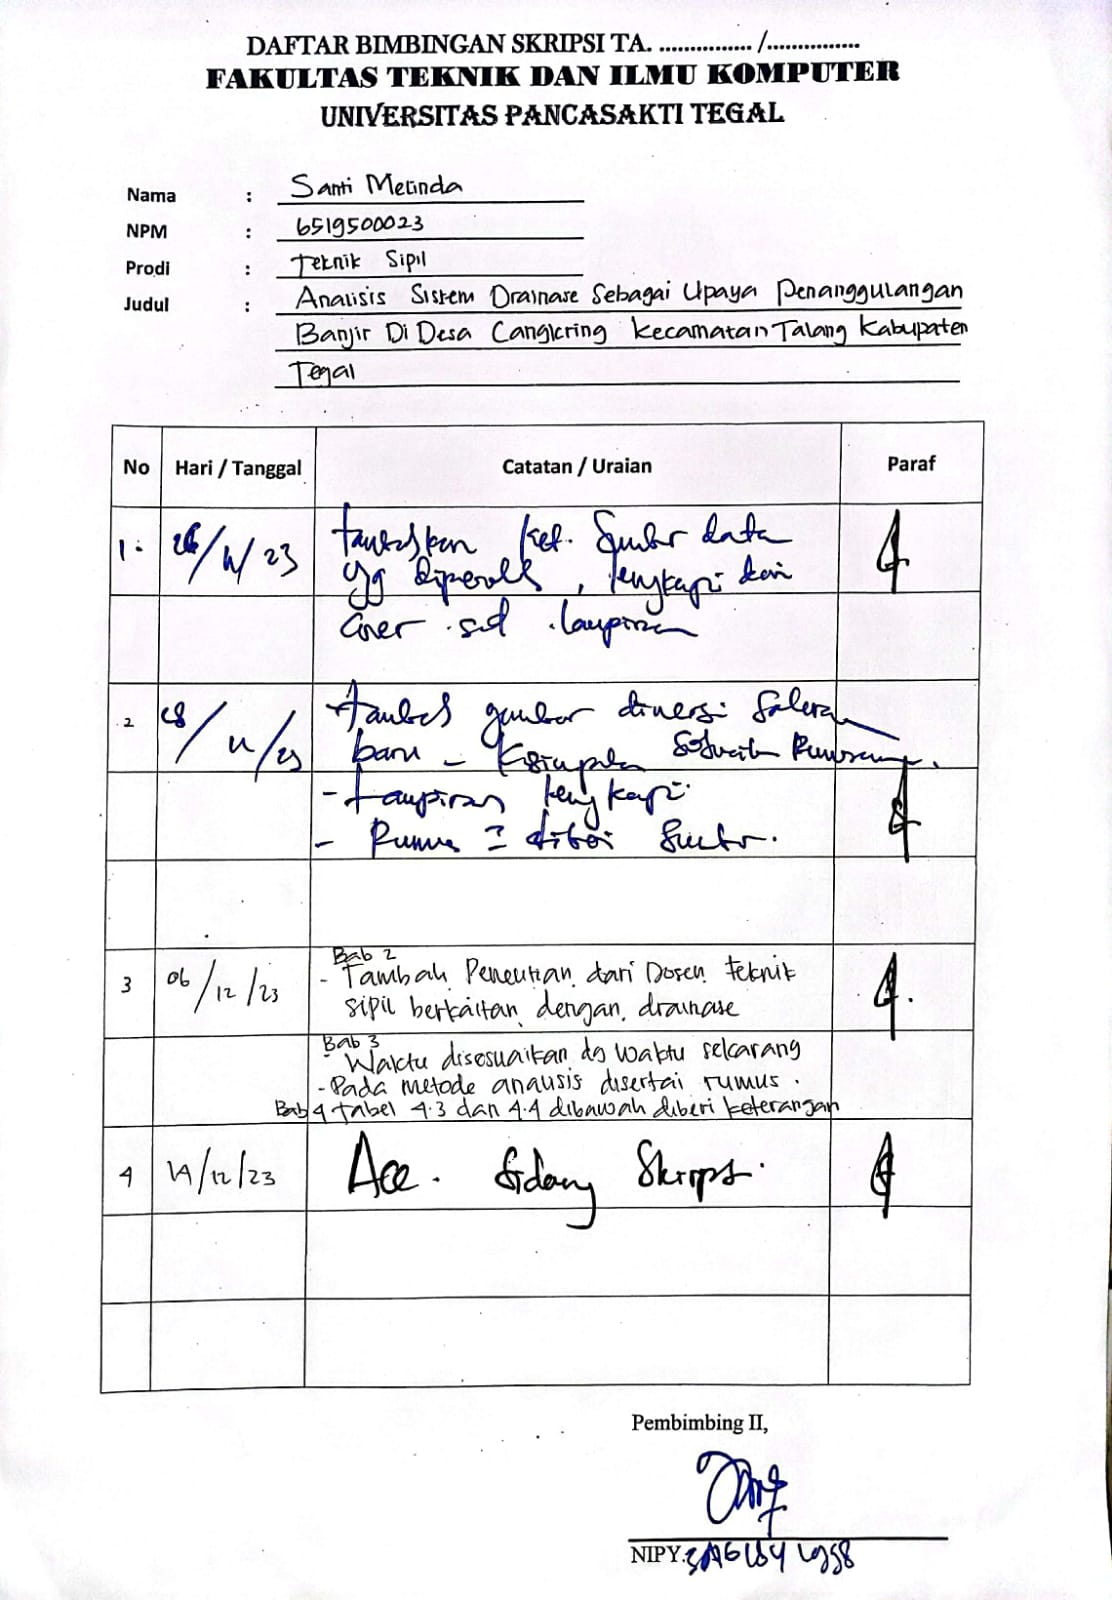 DAFTAR BIMBINGAN SKRIPSI TA. ............... /...............
FAKULTAS TEKNIK DAN ILMU KOMPUTER
UNIVERSITAS PANCASAKTI TEGAL
Nama : Santi Melinda
NPM : 6519500023
Prodi : Teknik Sipil
Judul : Analisis Sistem Drainase Sebagai Upaya Penanggulangan
Banjir Di Desa Cangkring Kecamatan Talang Kabupaten
Tegal
No Hari / Tanggal Catatan / Uraian Paraf
1. /23 Ket. Sumber data
yg diperoleh, lengkapi dari
cover s.d lampiran
2 28/11/23 gambar dimensi Saluran
baru - Kesimpulan Sesuaikan Rumusan.
- Lampiran lengkapi
- Rumus = diberi Sumber.
3 06/12/23 Bab 2
- Tambah Penelitian dari Dosen teknik
sipil berkaitan dengan drainase
Bab 3
- Waktu disesuaikan dg waktu sekarang
- Pada metode analisis disertai rumus.
Bab 4 tabel 4.3 dan 4.4 dibawah diberi keterangan
4 14/12/23 Acc. Sidang Skripsi.
Pembimbing II,
NIPY.